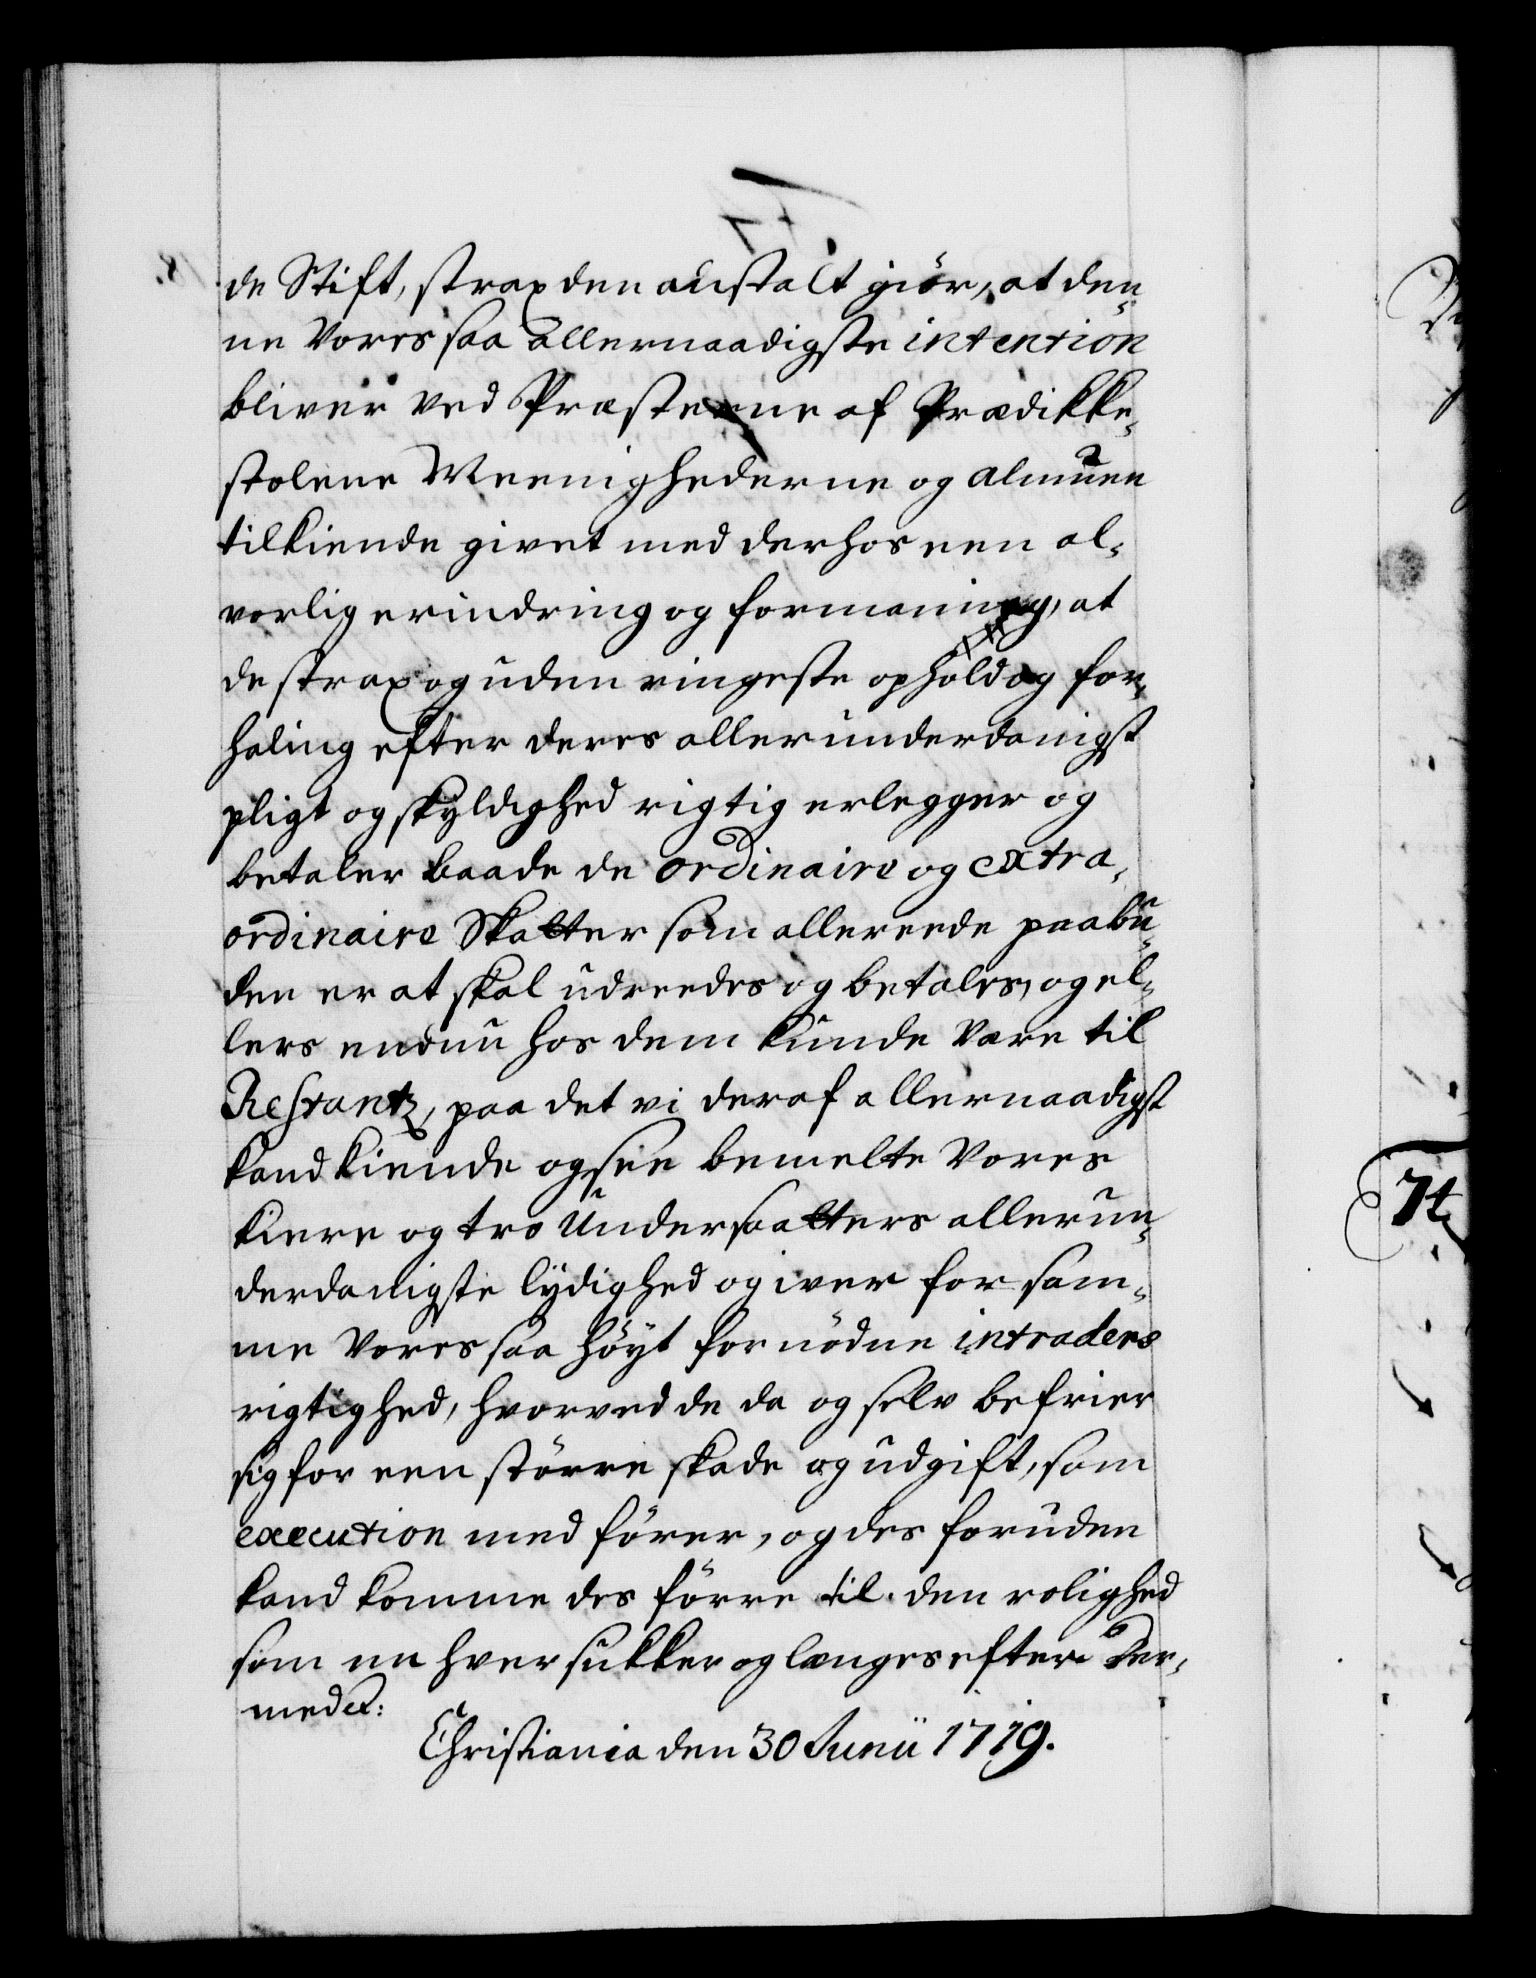 de Stift, strax den anstalt giör, at den¬
ne Vores saa allernaadigste intention
bliver ved Præsterne af Prædikke¬
stolene Meenighederne og almuen
tilkiende givet med derhos een al¬
vorlig erindring og formaning, at
de strax og uden ringeste ophold og for¬
haling efter deres allerunderdanigst
pligt og skyldighed rigtig erlegger og
betaler baade de ordinaire og extra¬
ordinaire Skatter som allereede paabu¬
den er at skal udreedes og betales, og el¬
lers endnu hos dem kunde være til
Restantz, paa det vi deraf allernaadigst
kand kiende og see bemelte Vores
kiere og tro Undersaatters allerun¬
derdanigste lydighed og iver for sam¬
me Vores saa höyt fornödne intraders
rigtighed, hvorved de da og selv befrier
sig for een större skade og udgift, som
execution med förer, og des foruden
kand komme des förre til den rolighed
som en hver sukker og længes efter. Der¬
med etc:
Christiania den 30 Junii 1719.
74